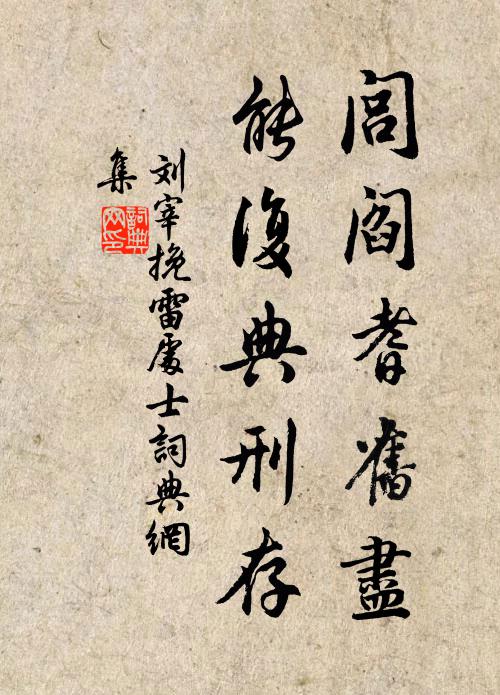 閭閻耆舊盡
能復典刑存
刘宰挽雷處士詞典網
集
詞典
网印